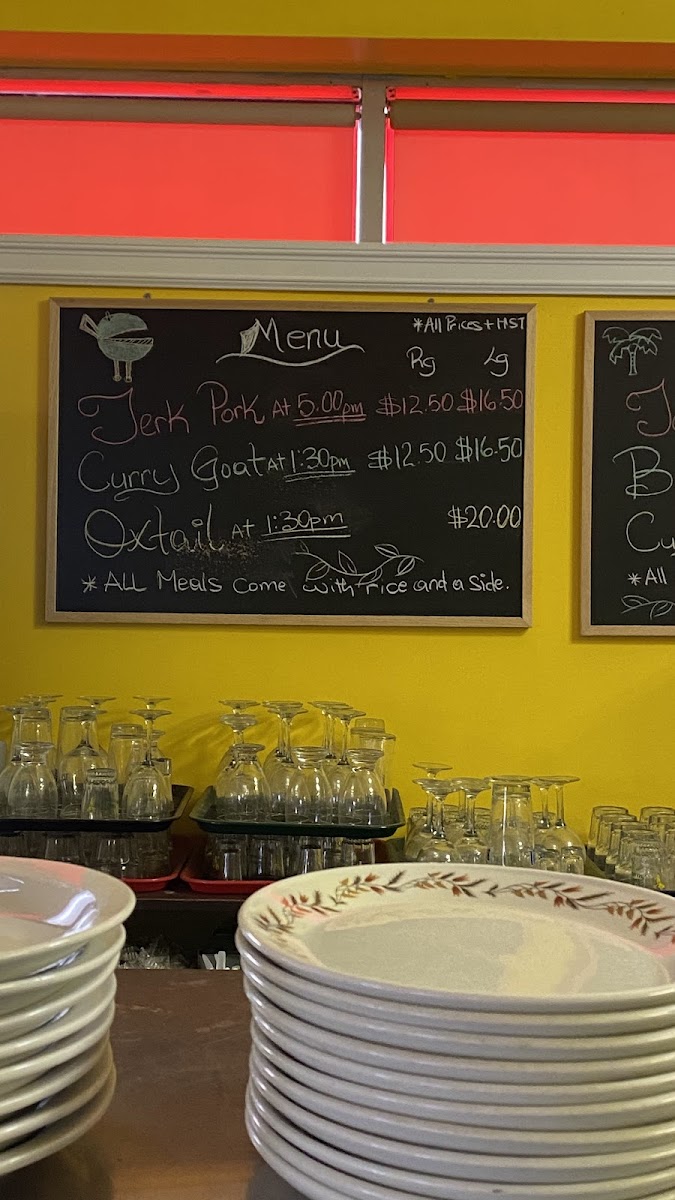 Menu
*All Prices + HST
Rg Lg
Jerk Pork At 5.00pm $12.50 $16.50
Curry Goat AT 1:30pm $12.50 $16.50
Oxtail AT 1:30pm $20.00
*ALL Meals come with rice and a side.
B
Cu
*All